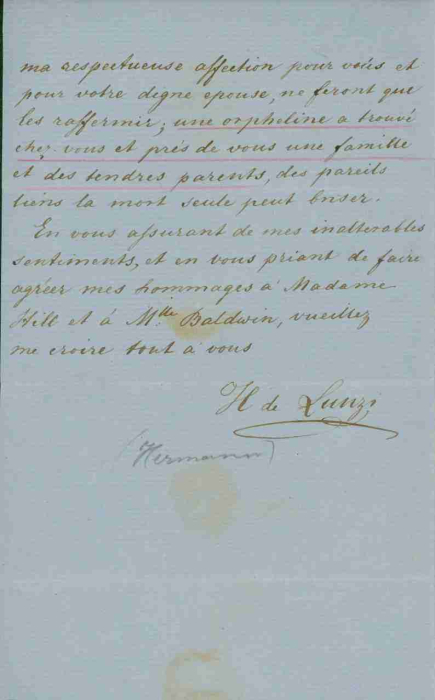 ma respectueuse affection pour vous et
pour votre digne epouse, ne feront que
les raffermir; une orpheline a trouvé
chez vous et prés de vous une famille
et des tendres parents, des pareils
liens la mort seule peut briser.
En vous assurant de mes inalterables
sentiments, et en vous priant de faire
agréer mes hommages à Madame
Hill et à Mlle Baldwin, vueillez
me croire tout à vous
H de Lunzi
(Hermann)